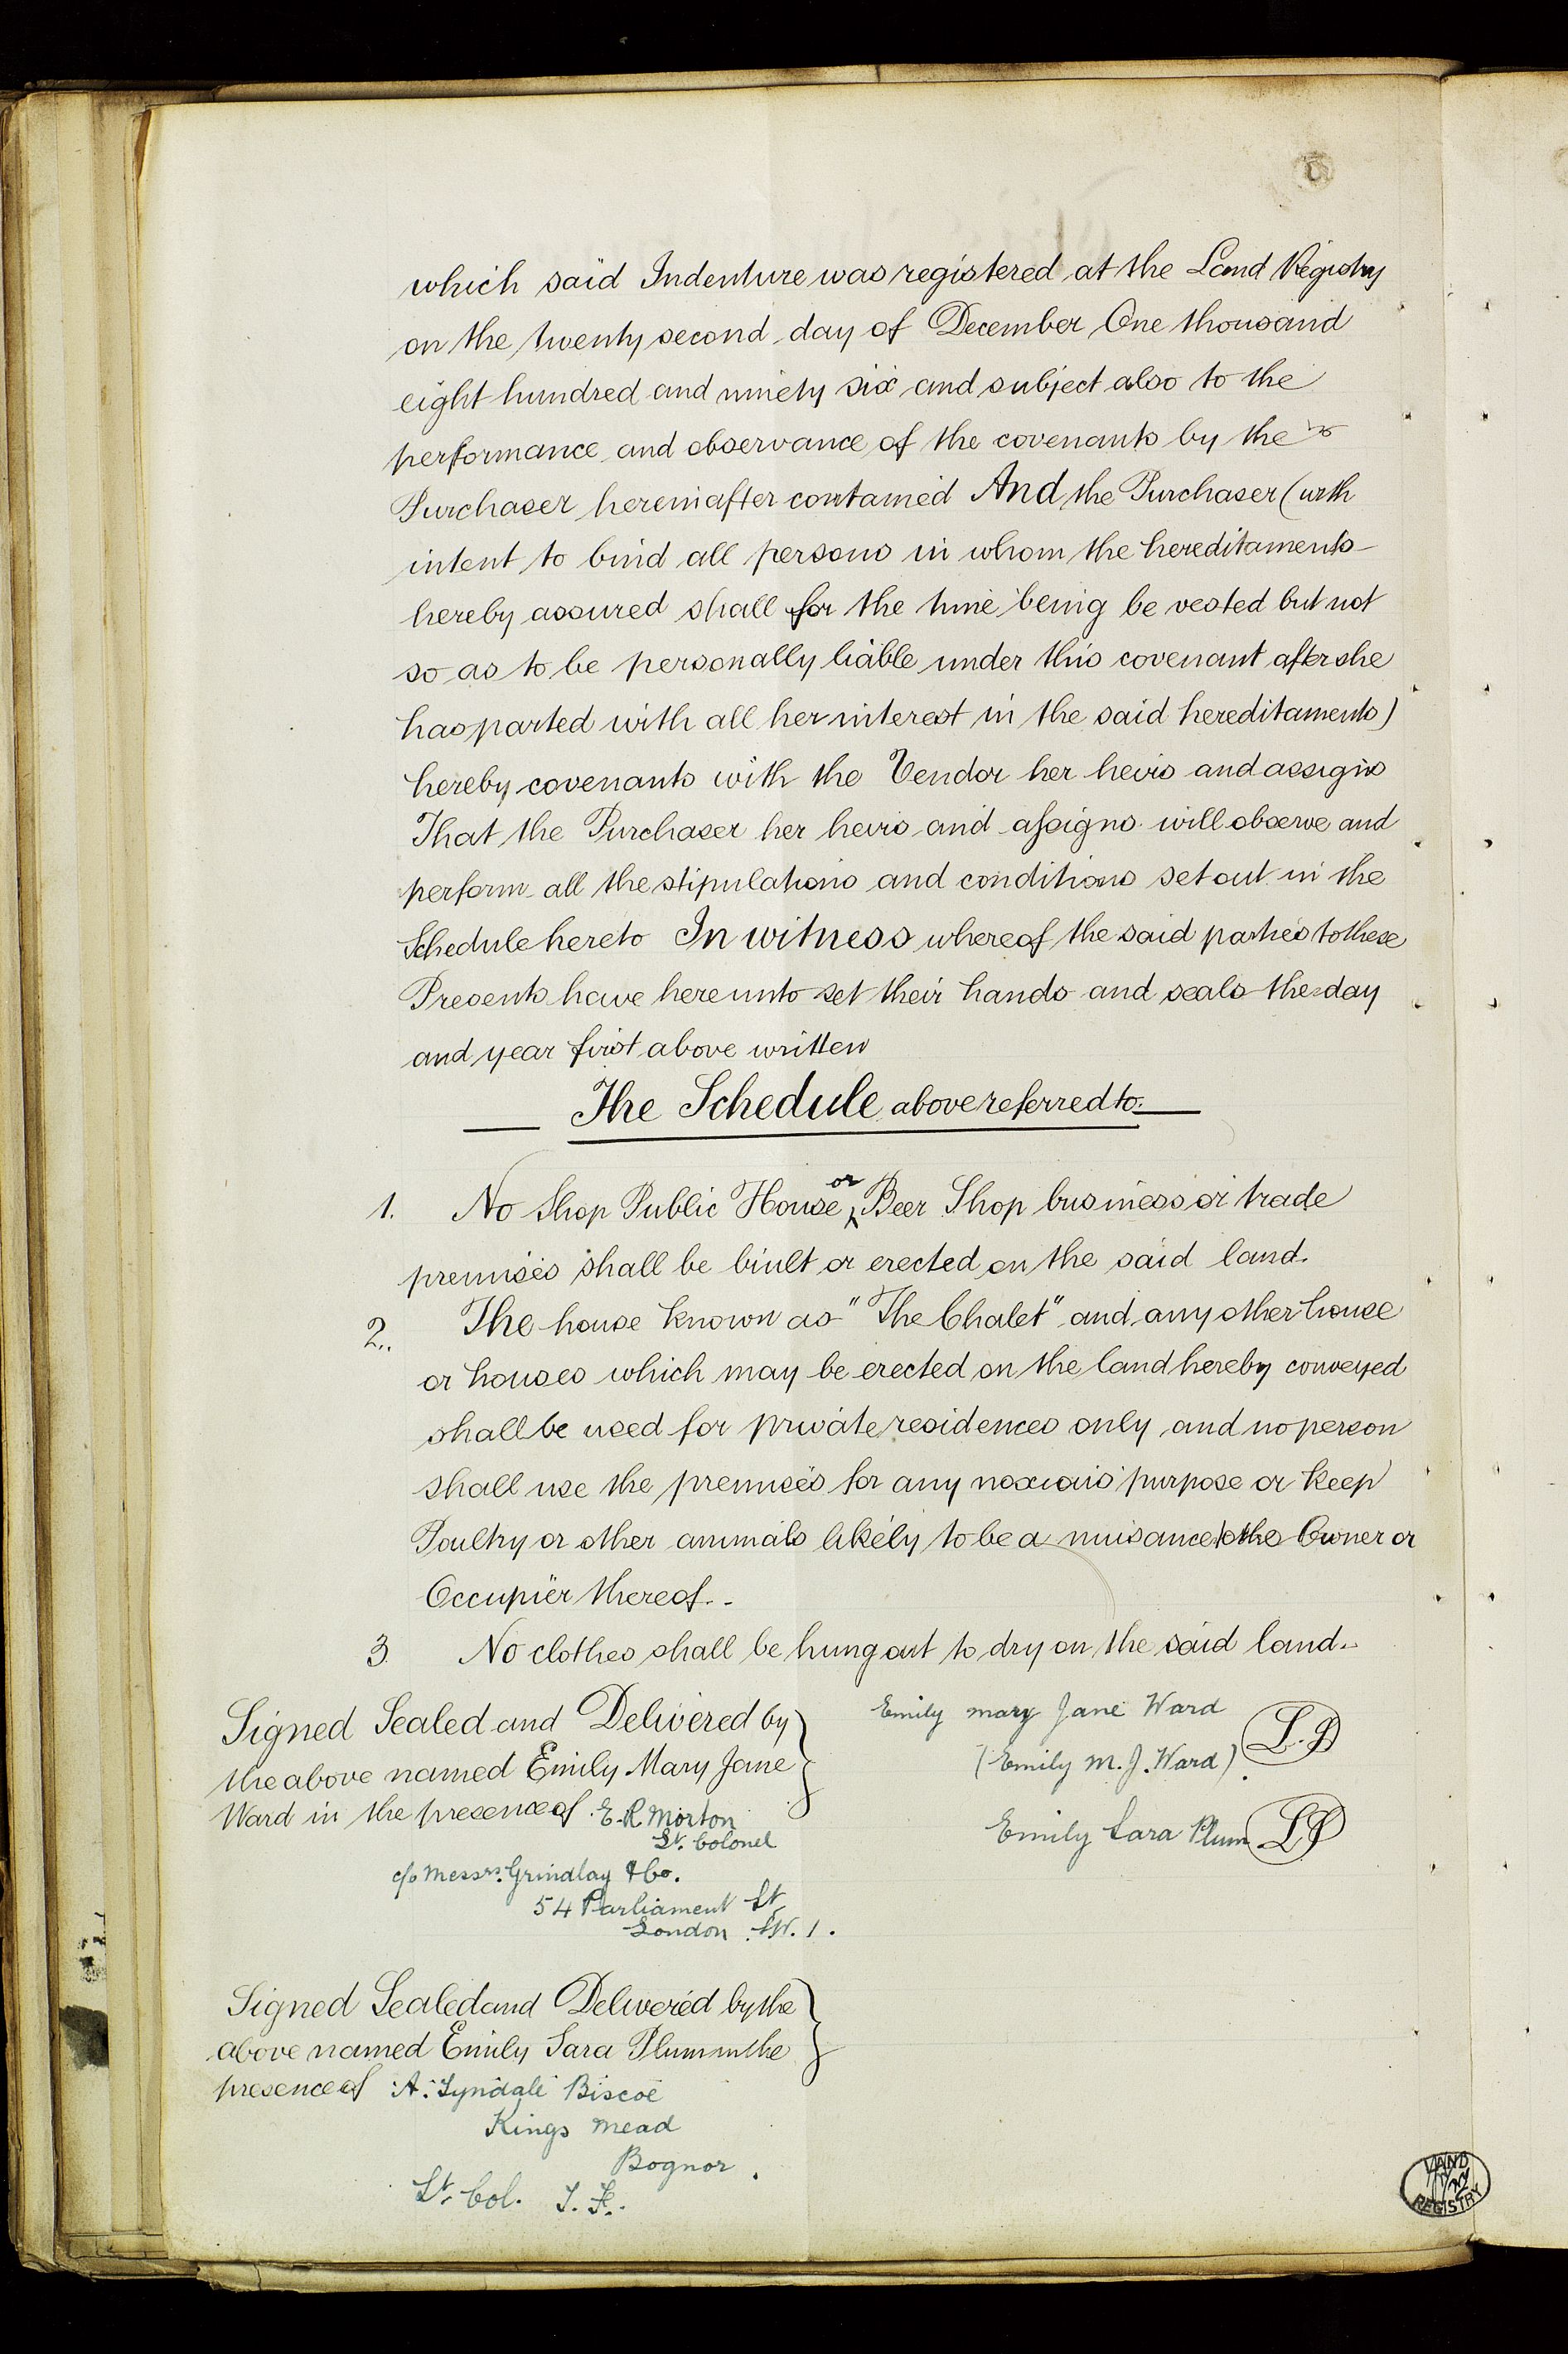 which said Indenture was registered at the Land Registry
on the twenty second day of December One thousand
eight hundred and ninety six and subject also to the
performance and observance of the covenants by the
Purchaser hereinafter contained And the Purchaser (with
intent to bind all persons in whom the hereditaments
hereby assured shall for the time being be vested but not
so as to be personally liable under this covenant after she
has parted with all her interest in the said hereditaments)
hereby covenants with the Vendor her heirs and assigns
That the Purchaser her heirs and assigns will observe and
perform all the stipulations and conditions set out in the
Schedule hereto In witness whereof the said parties to these
Presents have hereunto set their hands and seals the day
and year first above written
The Schedule above referred to.
1. No Shop Public House or Beer Shop business or trade
premises shall be built or erected on the said land.
2. The house known as "The Chalet" and any other house
or houses which may be erected on the land hereby conveyed
shall be used for private residences only and no person
shall use the premises for any noxious purpose or keep
Poultry or other animals likely to be a nuisance to the Owner or
Occupier thereof.
3 No clothes shall be hung out to dry on the said land.
Signed Sealed and Delivered by
the above named Emily Mary Jane
Ward in the presence of E. R. Morton
Lt. Colonel
c/o Messrs. Grindlay & Co.
54 Parliament St
London S.W. 1.
Emily Mary Jane Ward
(Emily M. J. Ward)
L.S
Emily Sara Plum
LS
Signed Sealed and Delivered by the
above named Emily Sara Plum in the
presence of A. Tyndale Biscoe
Kings Mead
Bognor.
Lt. Col. I. F.
LAND
REGISTRY